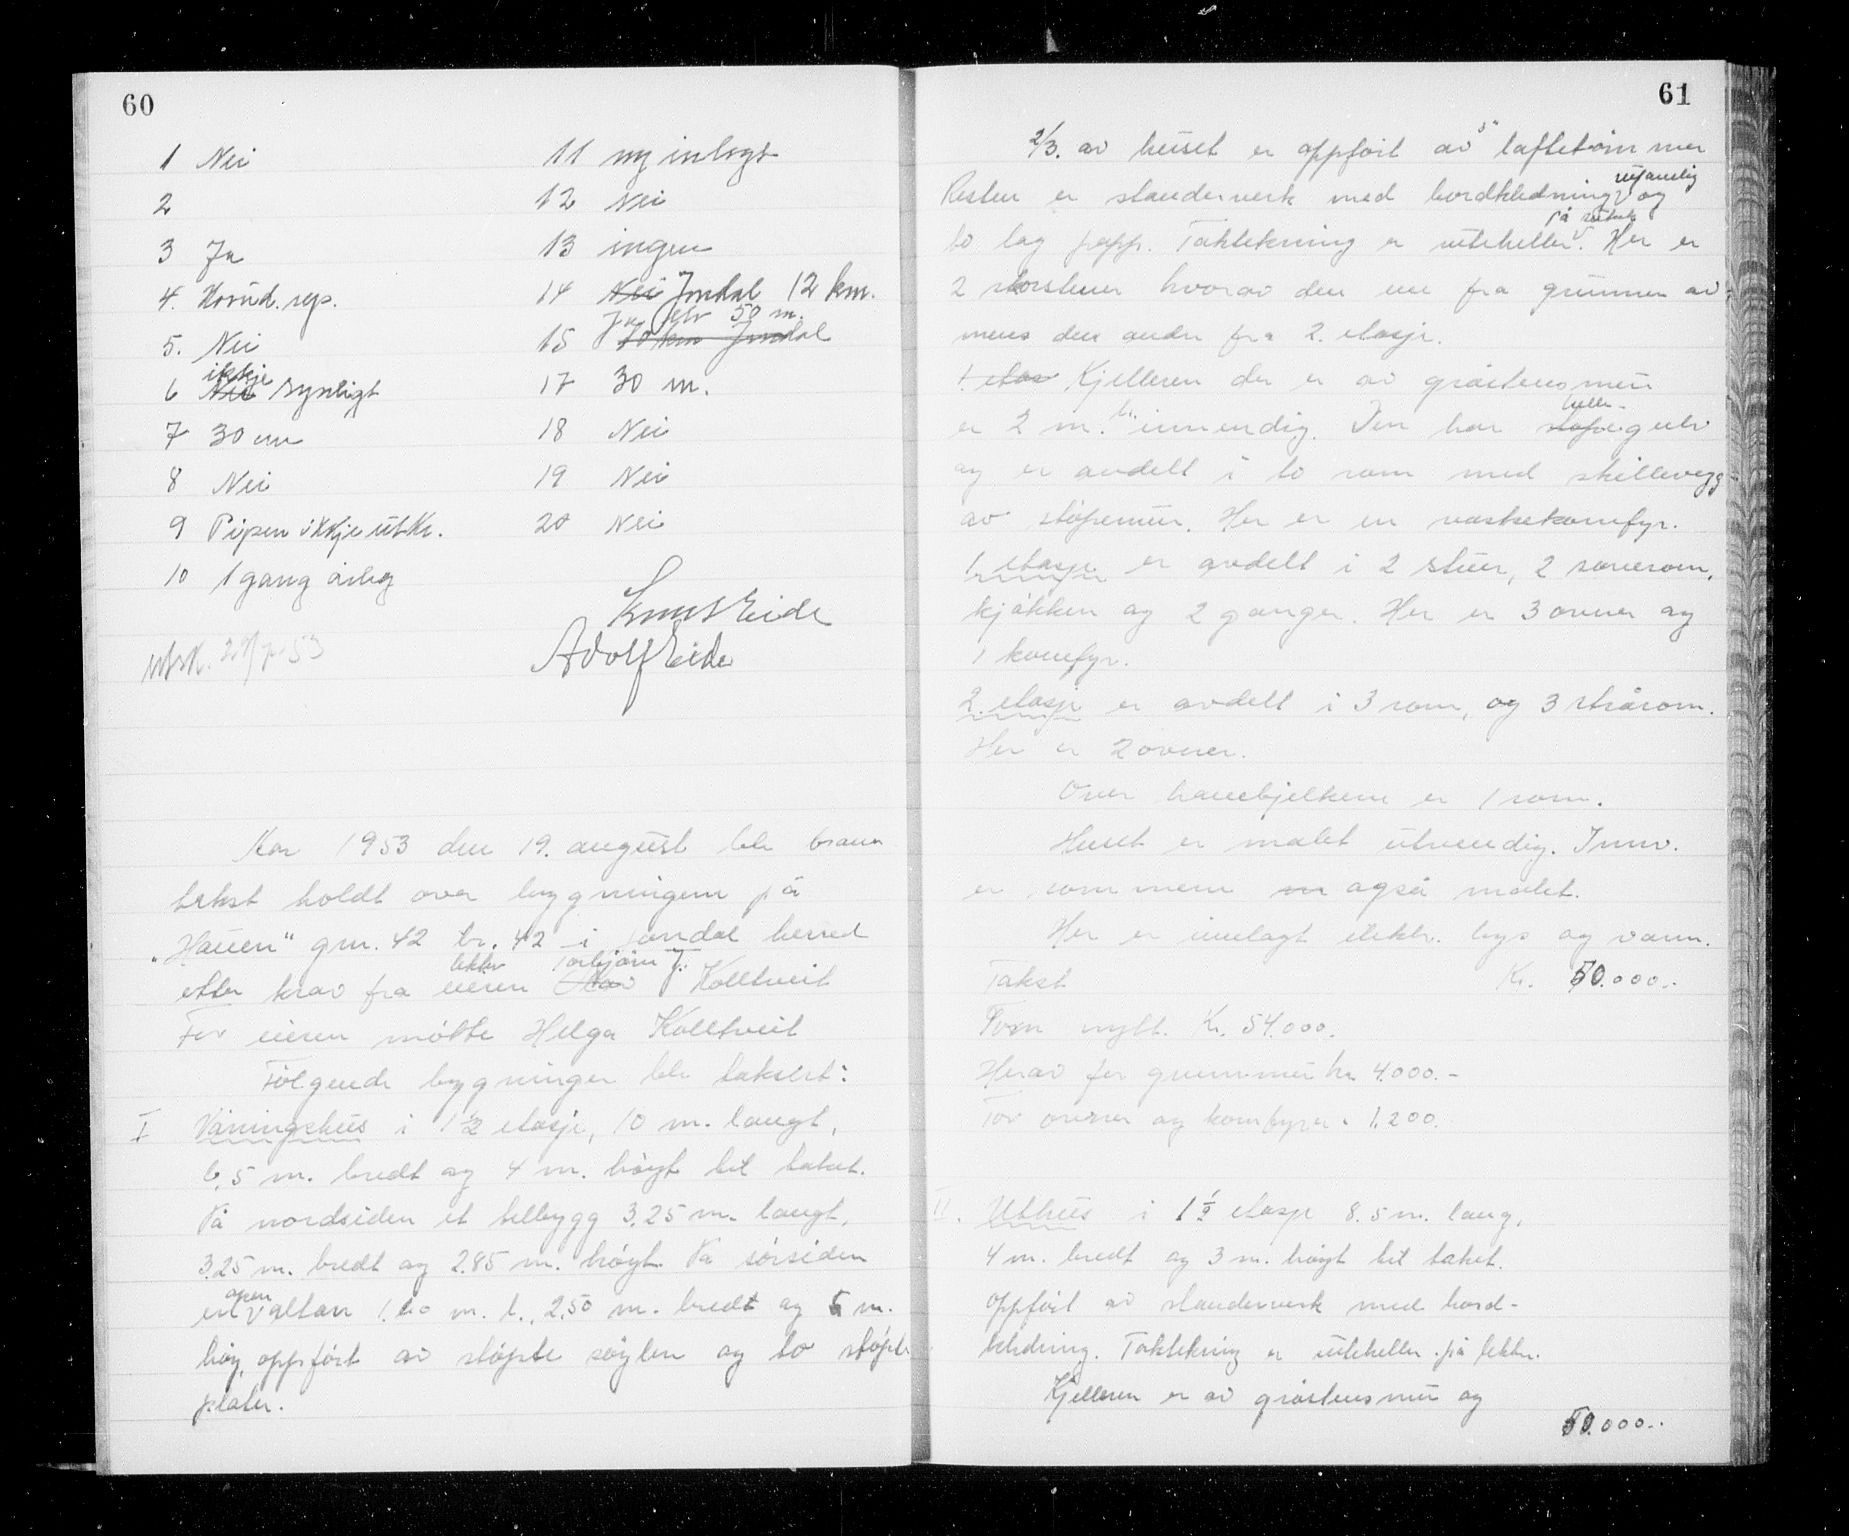 60
1 Nei
2
3 Ja
4. Hovud. rep.
5. Nei
6 Nei ikkje synligt
7 30 cm
8 Nei
9 Pipen ikkje utkr.
10 1 gang årleg
11 ny inlagt
12 Nei
13 ingen
14 Nei Jondal 12 km.
15 10 km Jondal Ja, elv 50 m.
17 30 m.
18 Nei
19 Nei
20 Nei
Knut Eide
Adolf Eide
utsk. 53
År 1953 den 19. august ble brann
takst holdt over bygningene på
„Hauen" gnr. 42 br. 42 i Jondal herred
etter krav fra eieren Olav Torbjörn J. Kolltveit
For eieren møtte Helga Kolltveit
Følgende bygninger ble taksert:
I Våningshus i 1 1/2 etasje, 10 m. langt,
6,5 m. bredt og 4 m. høyt til taket.
På nordsiden et tilbygg 3,25 m. langt,
3,25 m. bredt og 2.85 m. høyt. På sørsiden
en open altan 1,60 m. l., 2,50 m. bredt og 5 m.
høy, oppført av støpte søyler og to støpte
plater.
61
2/3. av huset er oppført av 5" laftetømmer
Resten er standerverk med bordkledning utvendig og
to lag papp. Taktekning er uteheller på sutak. Her er
2 skorsteiner hvorav den ene fra grunnen av,
mens den andre fra 2. etasje.
1. etas Kjelleren der er av gråsteinsmur
er 2 m. h. innvendig. Den har støpe helle-gulv
og er avdelt i to rom med skillevegg
av støpemur. Her er en vaskekomfyr.
1. etasje er avdelt i 2 stuer, 2 soverom,
kjøkken og 2 ganger. Her er 3 ovner og
1 komfyr.
2. etasje er avdelt i 3 rom, og 3 skrårom.
Her er 2 ovner.
Over hanebjelkene er 1 rom.
Huset er malet utvendig. Innv.
er rommene også malet.
Her er innlagt elektr. lys og vann.
Takst Kr. 50.000.-
Som nytt. Kr. 54.000.
Herav for grunnmur kr. 4.000.-
For ovner og komfyrer " 1.200.
II. Uthus i 1 1/2 etasje 8.5 m. lang,
4 m. bredt og 3 m. høyt til taket.
oppført av standerverk med bord-
kledning. Taktekning er uteheller på lekter.
Kjelleren er av gråsteinsmur og
50.000.-